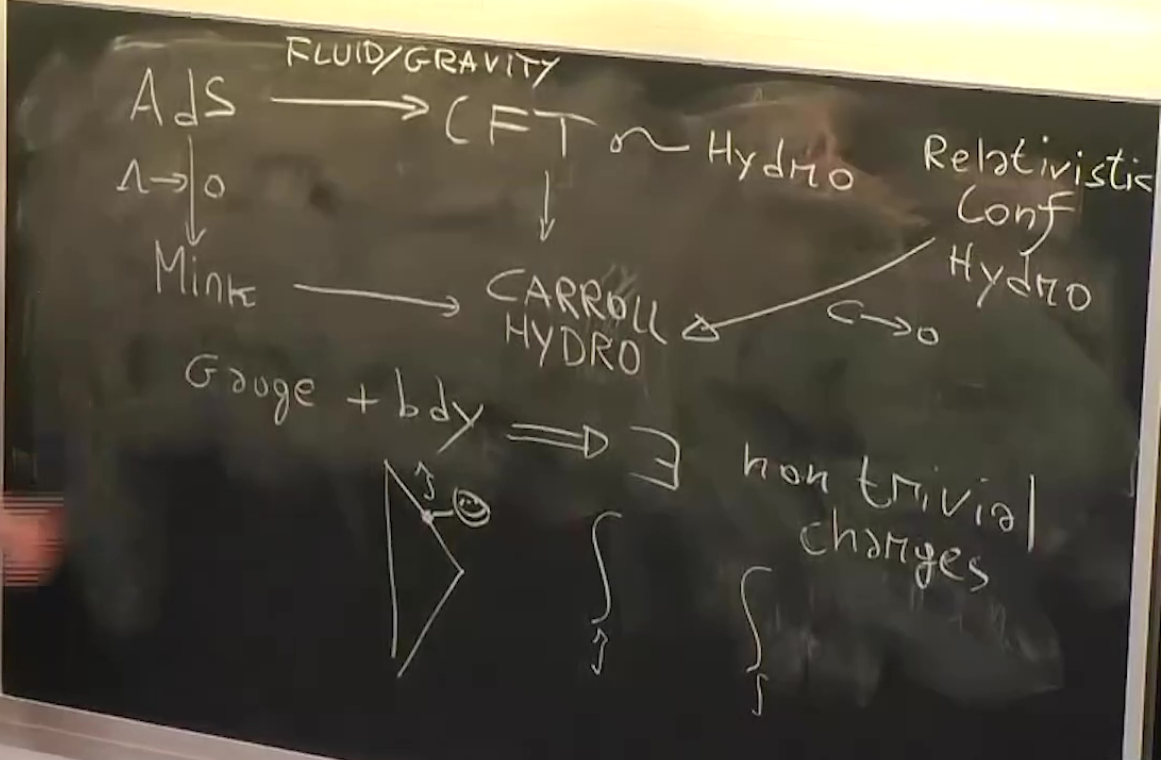 FLUID/GRAVITY
AdS → CFT ~ Hydro
Relativistic
Conf
Hydro
Λ→0
Mink → CARROLL
HYDRO
C→0
Gauge + bdy ⟹ ∃ non trivial
charges
∫
∫